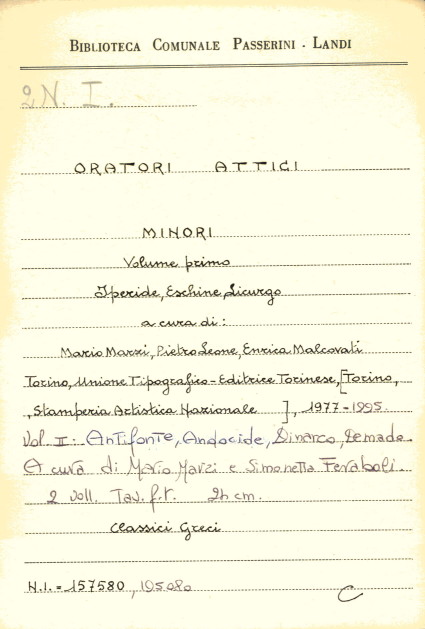 BIBLIOTECA COMUNALE PASSERINI - LANDI
2N. I.
ORATORI ATTICI
MINORI
Volume primo
Iperide, Eschine, Licurgo
a cura di:
Mario Marzi, Pietro Leone, Enrica Malcovati
Torino, Unione Tipografico-Editrice Torinese, [Torino,
, Stamperia Artistica Nazionale ], 1977-1995.
Vol. II: Antifonte, Andocide, Dinarco, Demade.
A cura di Mario Marzi e Simonetta Feraboli.
2 voll. Tav. f.t. 24 cm.
Classici Greci
N.I. = 157580, 195080
C